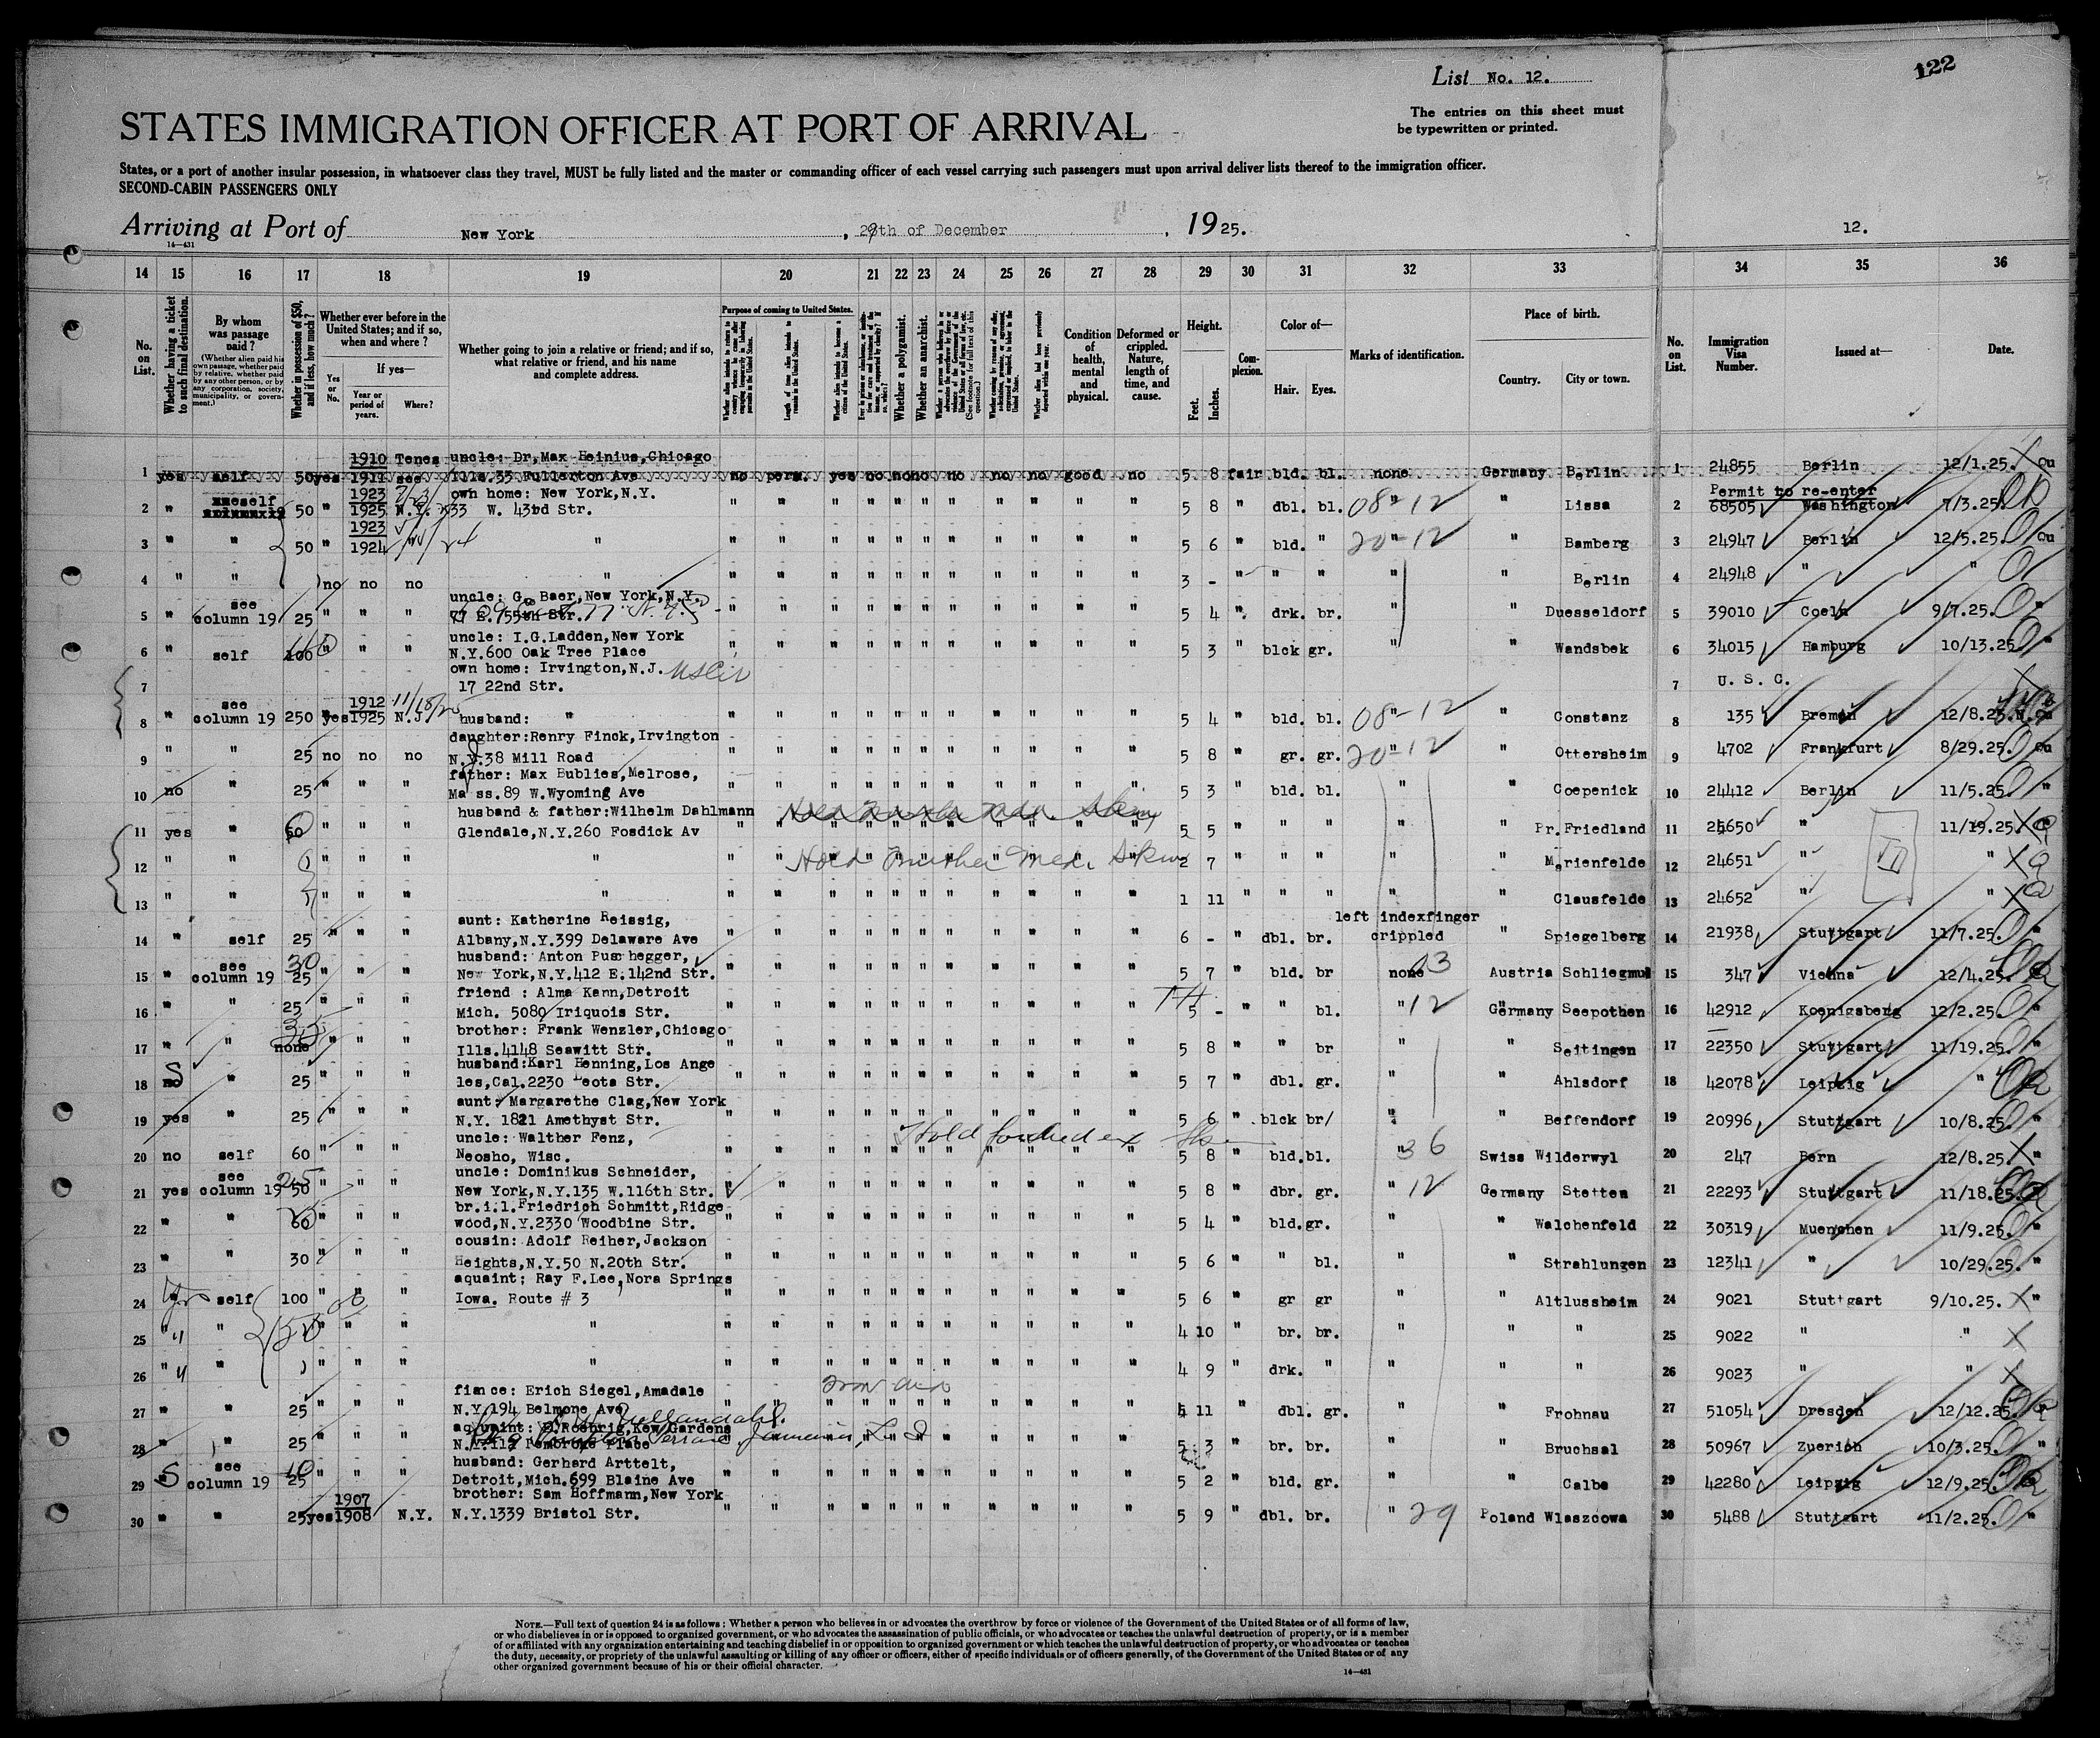 122
List No. 12.
The entries on this sheet must
be typewritten or printed.
STATES IMMIGRATION OFFICER AT PORT OF ARRIVAL
States, or a port of another insular possession, in whatsoever class they travel, MUST be fully listed and the master or commanding officer of each vessel carrying such passengers must upon arrival deliver lists thereof to the immigration officer.
SECOND-CABIN PASSENGERS ONLY
Arriving at Port of New York, th of December, 1925.
12.
14—431
14 15 16 17 18 19 20 21 22 23 24 25 26 27 28 29 30 31 32 33 34 35 36
No. on List.
Whether having a ticket to such final destination.
By whom was passage paid?
(Whether alien paid his own passage, whether paid by relative, whether paid by any other person, or by any corporation, society, municipality, or government.)
Whether in possession of $50, and if less, how much?
Whether ever before in the United States; and if so, when and where?
Yes or No.
If yes—
Year or period of years.
Where?
Whether going to join a relative or friend; and if so, what relative or friend, and his name and complete address.
Purpose of coming to United States.
Whether a polygamist.
Whether an anarchist.
Condition of health, mental and physical.
Deformed or crippled. Nature, length of time, and cause.
Height.
Feet. Inches.
Complexion.
Color of—
Hair. Eyes.
Marks of identification.
Place of birth.
Country. City or town.
No. on List.
Immigration Visa Number.
Issued at—
Date.
1910 Tenes uncle: Dr, Max Heinius, Chicago
1 yes self 50 yes 1911 see Ills. 33 Fullerton Ave no perm. yes no no no no no no good no 5 8 fair bld. bl. none Germany Berlin 1 24855 Berlin 12/1.25.
self 1923 own home: New York, N.Y. Permit to re-enter
2 " 50 " 1925 N.Y. 33 W. 43rd Str. " " " " " " " " " " " 5 8 " dbl. bl. 08-12 " Lissa 2 68505 Washington 7/3.25.
1923
3 " " 50 " 1924 " " " " " " " " " " " " " 5 6 " bld. " 20-12 " Bamberg 3 24947 Berlin 12/5.25.
4 " " no no no " " " " " " " " " " " " 3 - " " " " " Berlin 4 24948 " "
see uncle: G. Baer, New York, N.Y.
5 " column 19 25 " " " 77 E. 55th Str. " " " " " " " " " " " 5 4 " drk. br. " " Duesseldorf 5 39010 Coeln 9/7.25.
uncle: I.G.Ladden, New York
6 " self 100 " " " N.Y. 600 Oak Tree Place " " " " " " " " " " " 5 3 " blck gr. " " Wandsbek 6 34015 Hamburg 10/13.25
own home: Irvington, N.J.
7 17 22nd Str. 7 U. S. C.
see 1912 11/18/25
8 " column 19 250 yes 1925 N.J. husband: " " " " " " " " " " " " 5 4 " bld. bl. 08-12 " Constanz 8 135 Bremen 12/8.25.
daughter: Henry Finck, Irvington
9 " " 25 no no no N.Y. 38 Mill Road " " " " " " " " " " " 5 8 " gr. gr. 20-12 " Ottersheim 9 4702 Frankfurt 8/29.25.
father: Max Bublies, Melrose,
10 no " 25 " " " Mass. 89 W.Wyoming Ave " " " " " " " " " " " 5 3 " bld. bl. " " Coepenick 10 24412 Berlin 11/5.25
husband & father: Wilhelm Dahlmann
11 yes " 50 " " " Glendale, N.Y. 260 Fosdick Av " " " " " " " " " " " 5 5 " " " " " Pr. Friedland 11 24650 " 11/19.25.
12 " " " " " " " " " " " " " " " " " 2 7 " " " " " Marienfelde 12 24651 " "
13 " " " " " " " " " " " " " " " " 1 11 " " " " " Clausfelde 13 24652 " "
aunt: Katherine Reissig, left indexfinger
14 " self 25 " " " Albany, N.Y. 399 Delaware Ave " " " " " " " " " " " 6 - " dbl. br. crippled " Spiegelberg 14 21938 Stuttgart 11/7.25.
see 30 husband: Anton Puschegger,
15 " column 19 25 " " " New York, N.Y. 412 E. 142nd Str. " " " " " " " " " " " 5 7 " bld. br none 03 Austria Schliegmul 15 347 Vienna 12/4.25.
friend : Alma Kann, Detroit
16 " " 25 " " " Mich. 5080 Iriquois Str. " " " " " " " " " " " 5 - " " bl. " 12 Germany Seepothen 16 42912 Koenigsberg 12/2.25.
35 brother: Frank Wenzler, Chicago
17 " " none " " " Ills. 4148 Seawitt Str. " " " " " " " " " " " 5 8 " " br " " Seitingen 17 22350 Stuttgart 11/19.25.
husband: Karl Henning, Los Ange
18 no " 25 " " " les, Cal. 2230 Leota Str. " " " " " " " " " " " 5 7 " dbl. gr. " " Ahlsdorf 18 42078 Leipzig "
aunt: Margarethe Clag, New York
19 yes " 25 " " " N.Y. 1821 Amethyst Str. " " " " " " " " " " " 5 6 " blck br/ " " Beffendorf 19 20996 Stuttgart 10/8.25.
uncle: Walther Fenz,
20 no self 60 " " " Neosho, Wisc. " " " " " " " " " " " 5 8 " bld. bl. " 36 Swiss Wilderwyl 20 247 Bern 12/8.25.
see 25 uncle: Dominikus Schneider,
21 yes column 19 50 " " " New York, N.Y. 135 W. 116th Str. " " " " " " " " " " " 5 8 " dbr. gr. " 12 Germany Stetten 21 22293 Stuttgart 11/18.25.
br.i.l. Friedrich Schmitt, Ridge
22 " " 60 " " " wood, N.Y. 2330 Woodbine Str. " " " " " " " " " " " 5 4 " bld. gr. " " Walchenfeld 22 30319 Muenchen 11/9.25.
cousin: Adolf Reiher, Jackson
23 " " 30 " " " Heights, N.Y. 50 N. 20th Str. " " " " " " " " " " " 5 6 " " bl. " " Strahlungen 23 12341 " 10/29.25.
aquaint: Ray F. Lee, Nora Springs
24 " self 100 " " " Iowa. Route # 3 " " " " " " " " " " " 5 6 " gr gr " " Altlussheim 24 9021 Stuttgart 9/10.25.
25 " " " " " " " " " " " " " " " " " 4 10 " br. br. " " " 25 9022 " "
26 " " " " " " " " " " " " " " " " " 4 9 " drk. " " " " 26 9023 " "
fiance: Erich Siegel, Amadale
27 " " 25 " " " N.Y. 194 Belmone Ave " " " " " " " " " " " 4 11 " dbl. gr. " " Frohnau 27 51054 Dresden 12/12.25.
aquaint: Roehrig, Kew Gardens
28 " " 25 " " " N.Y. Pembroke Place " " " " " " " " " " " 5 3 " br. br. " " Bruchsal 28 50967 Zuerich 10/3.25.
see 40 husband: Gerhard Arttelt,
29 " column 19 25 " " " Detroit, Mich. 699 Blaine Ave " " " " " " " " " " " 5 2 " bld. gr. " " Calbe 29 42280 Leipzig 12/9.25.
1907 brother: Sam Hoffmann, New York
30 " " 25 yes 1908 N.Y. N.Y. 1339 Bristol Str. " " " " " " " " " " " 5 9 " dbl. br. " 29 Poland Wlaszcowa 30 5488 Stuttgart 11/2.25.
NOTE.—Full text of question 24 is as follows: Whether a person who believes in or advocates the overthrow by force or violence of the Government of the United States or of all forms of law,
or who disbelieves in or is opposed to organized government, or who advocates the assassination of public officials, or who advocates or teaches the unlawful destruction of property, or is a member
of or affiliated with any organization entertaining and teaching disbelief in or opposition to organized government or which teaches the unlawful destruction of property, or who advocates or teaches
the duty, necessity, or propriety of the unlawful assaulting or killing of any officer or officers, either of specific individuals or of officers generally, of the Government of the United States or of any
other organized government because of his or their official character.
14—431